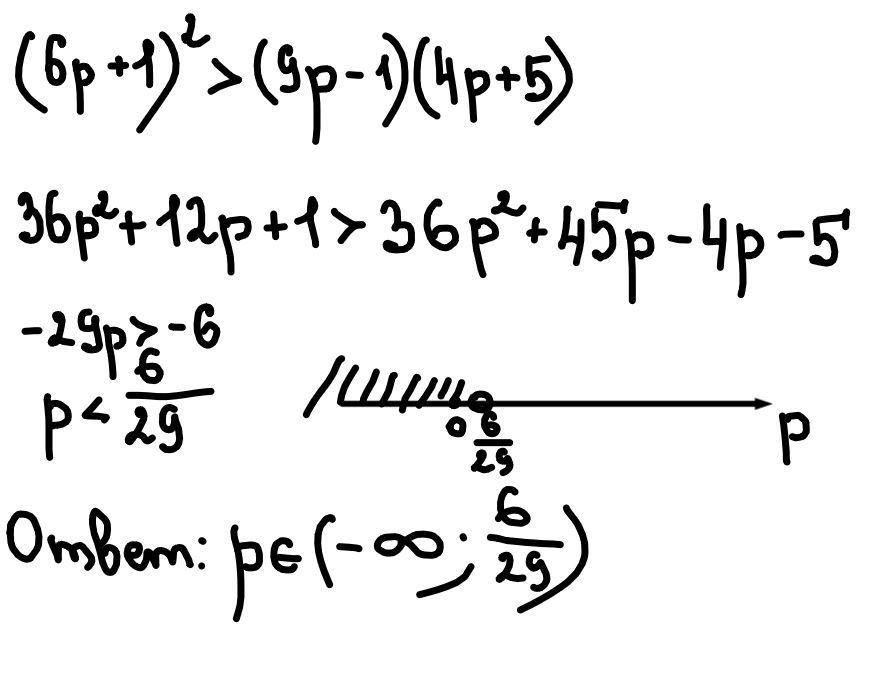 (6p+1)² > (9p-1)(4p+5)
36p²+12p+1 > 36p²+45p-4p-5
-29p > -6
p < 6/29
0 6/29 p
Ответ: p∈(-∞; 6/29)